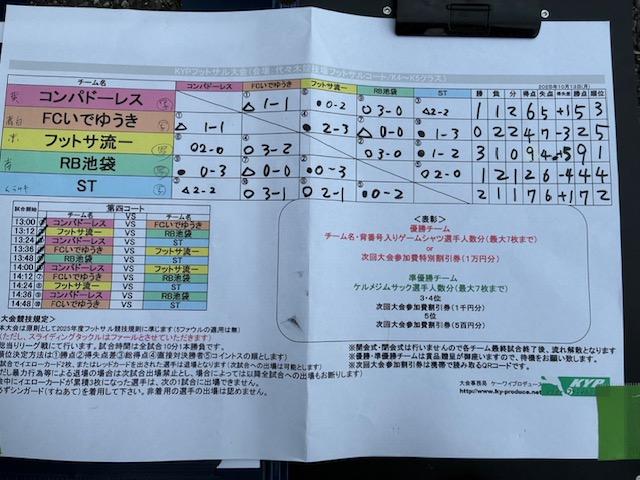 KYPフットサル大会(会場:代々木競技場フットサルコート/K4~K5クラス)
2025年10月13日(月)
チーム名 コンパドーレス FCいでゆうき フットサ流一 RB池袋 ST 勝 負 分 得点 失点 得失差 勝点 順位
コンパドーレス ① △ 1-1 ⑥ ● 0-2 ⑨ ○ 3-0 ③ △ 2-2 1 1 2 6 5 +1 5 3
FCいでゆうき ① △ 1-1 ④ ● 2-3 ⑦ △ 0-0 ⑩ ● 1-3 0 2 2 4 7 -3 2 5
フットサ流一 ⑥ ○ 2-0 ④ ○ 3-2 ② ○ 3-0 ⑧ ● 1-2 3 1 0 9 4 +5 9 1
RB池袋 ⑨ ● 0-3 ⑦ △ 0-0 ② ● 0-3 ⑤ ○ 2-0 1 2 1 2 6 -4 4 4
ST ③ △ 2-2 ⑩ ○ 3-1 ⑧ ○ 2-1 ⑤ ● 0-2 2 1 1 7 6 +1 7 2
試合開始 第四コート
チーム名 VS チーム名
13:00 ① コンパドーレス VS FCいでゆうき
13:12 ② フットサ流一 VS RB池袋
13:24 ③ コンパドーレス VS ST
13:36 ④ FCいでゆうき VS フットサ流一
13:48 ⑤ RB池袋 VS ST
14:00 ⑥ コンパドーレス VS フットサ流一
14:12 ⑦ FCいでゆうき VS RB池袋
14:24 ⑧ フットサ流一 VS ST
14:36 ⑨ コンパドーレス VS RB池袋
14:48 ⑩ FCいでゆうき VS ST
<表彰>
優勝チーム
チーム名・背番号入りゲームシャツ選手人数分(最大7枚まで)
or
次回大会参加費特別割引券(1万円分)
準優勝チーム
ケルメジムサック選手人数分(最大7枚まで)
3・4位
次回大会参加費割引券(1千円分)
5位
次回大会参加費割引券(5百円分)
大会競技規定>
本大会は原則として2025年度フットサル競技規則に準じます(5ファウルの適用は無)
(ただし、スライディングタックルはファールとさせていただきます)
総当りリーグ戦にて行います。試合時間は全試合10分1本勝負です。
順位決定方法は①勝点②得失点差③総得点④直接対決勝者⑤コイントスの順とします)
でイエローカード2枚、またはレッドカードを出された選手は退場となります(次試合への出場は可能とします)
だし暴力行為等による退場の場合は次試合出場禁止とし、場合によっては以降全試合への出場もお断りします)
中にイエローカードが累積3枚になった選手は、次の1試合に出場できません。
ずシンガード(すねあて)を着用して下さい。非着用の選手の出場は認めません。
※開会式・閉会式は行いませんので各チーム最終試合終了後、流れ解散となります
※優勝・準優勝チームは賞品贈呈が御座いますので、待機をお願い致します。
※次回大会参加費割引券は携帯で読み取るQRコードです。
大会事務局 ケーワイプロデュース
http://www.ky-produce.net
KYP